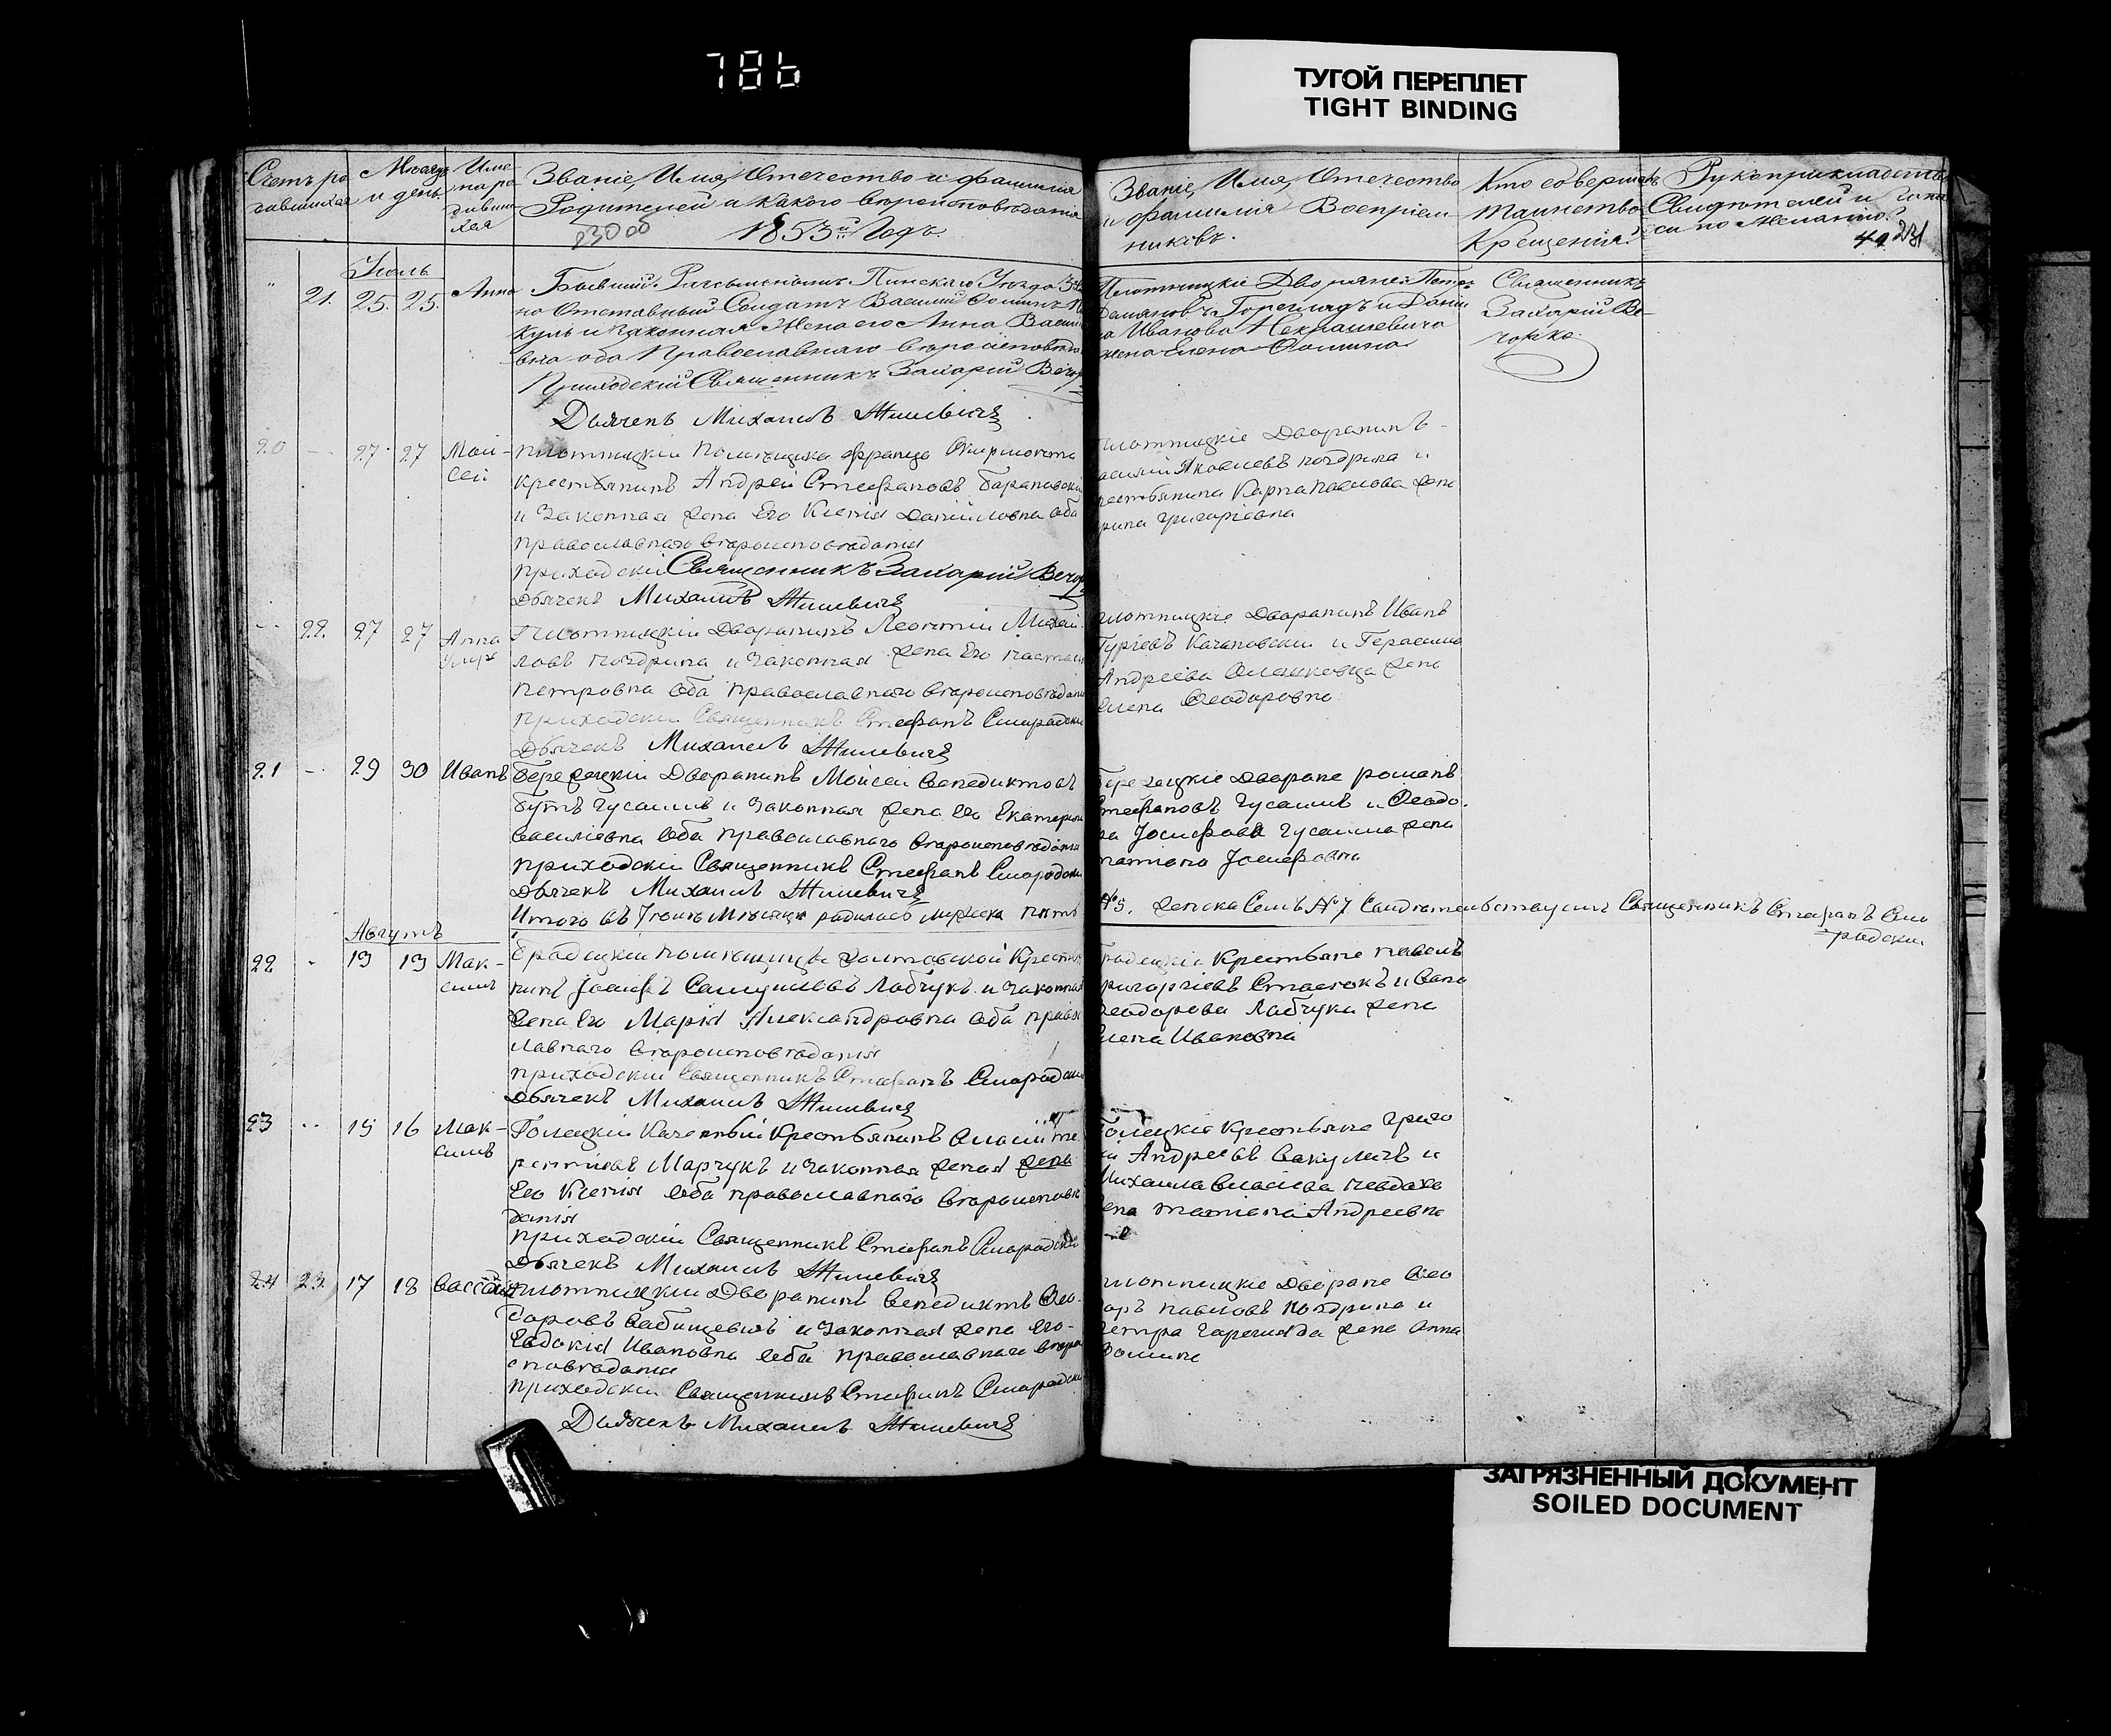 786
ТУГОЙ ПЕРЕПЛЕТ
TIGHT BINDING
Счетъ ро
дившихся
Мѣсяцъ
и день.
Име-
на ро
дивши
хся
Званіе, Имя, Отечество и фамилія
Родителей и какого вѣроисповѣданія
1853й Годъ
Званіе, Имя, Отечество
и фамилія Воспріем
никовъ.
Кто совершалъ
таинство
Крещенія?
Рукоприкладство
Свидѣтелей
по желанію.
Іюль
21. 25. 25. Анна
Бывшій Пинскаго Уѣзда
но Отставный Солдатъ Василій Ѳоминъ
и законная Жена его Анна Васи
вна оба Православнаго вѣроисповѣда
Приходскій Священникъ Захарій Вечор
Дьячекъ Михаилъ Жилевичъ
Плотницкіе Дворяне
Демяновъ Горегладъ и Дани
а Иванова Некрашевича
жена Елена Ѳомина
Священникъ
Захарій Ве-
чорко
20 - 27 27 Мои-
сей
Плотницкій Помѣщика Франца
крестьянинъ Андрей Стефановъ Барановскі
и законная жена Его Ксенія Даніиловна оба
православнаго вѣроисповѣданія
приходскій Священникъ Захарій Вечор
дьячекъ Михаилъ Жилевичъ
лотницкіе Дворянинъ
асилій Яковлевъ поздрина и
рестьянина Карпа Павлова жена
рина Григоріевна
22. 27 27 Анна
Плотницкій Дворянинъ Леонтій Михаи
ловъ поздрина и законная жена Его Настас
Петровна оба православнаго вѣроисповѣдані
приходскій Священникъ Стефанъ Смородски
Дьячекъ Михаилъ Жилевичъ
лотницкіе Дворянинъ Иванъ
Гуріевъ Качановскій и Герасима
Андреева Олешкевца жена
елена Ѳеодоровна
21 - 29 30 Иванъ
Бережецкій Дворянинъ Моисей Венедиктовъ
Бутъ Гусаимъ и законная жена Его Екатерин
Василіевна оба православнаго вѣроисповѣдані
приходскій Священникъ Стефанъ Смородски
Дьячекъ Михаилъ Жилевичъ
Бережецкіе дворяне романъ
Стефановъ Гусаимъ и Ѳеодо-
ра Іосифова Гусаима жена
татіана Іосифовна
Итого въ Іюлѣ Мѣсяцѣ родилось мужеска пять
№5. женска Семь №7 Свидѣтельствуетъ Священникъ Стефанъ Смо
родски
Августъ
22 - 13 13 Мак-
симъ
Крестья
нинъ Іосифъ Самуиловъ Лабчукъ и законная
жена Его Марія Александровна оба право
лавнаго вѣроисповѣданія
приходскій Священникъ Стефанъ Смородски
дьячекъ Михаилъ Жилевичъ
радецкіе Крестьяне павелъ
ригоріевъ Стасюкъ и Ивана
Ѳеодорова Лабчука жена
лена Ивановна
23 - 15 16 Мак-
симъ
Голецкій Казенный Крестьянинъ Власій те
рентіевъ Марчукъ и законная женая жена
Его Ксенія оба православнаго вѣроисповѣ
данія
приходскій Священникъ Стефанъ Смородски
Дьячекъ Михаилъ Жилевичъ
Голецкіе Крестьяне Григо
ій Андреевъ Вакуличъ и
Михаила Власіева
ена татіана Андреевна
24 23. 17 18 Васса
плотницкій Дворянинъ Венедиктъ Ѳео-
доровъ Бабицевичъ и законная жена его-
Евдокія Ивановна оба православнаго вѣро
споведанія
приходскій Священникъ Стефанъ Смородски
Дьячекъ Михаилъ Жилевичъ
лотницкіе Дворяне Ѳео
оръ павловъ поздрина и
етра Гореглада жена Анна
Ѳомина
ЗАГРЯЗНЕННЫЙ ДОКУМЕНТ
SOILED DOCUMENT